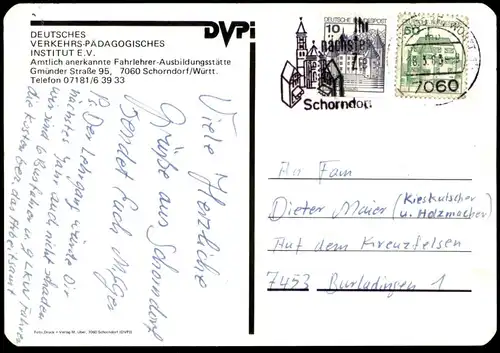 DEUTSCHES
VERKEHRS-PÄDAGOGISCHES
INSTITUT E.V.
Amtlich anerkannte Fahrlehrer-Ausbildungsstätte
Gmünder Straße 95, 7060 Schorndorf/Württ.
Telefon 07181/6 39 33
DVPi
Schorndorf
10
DEUTSCHE BUNDESPOST
50
7060
Viele Herzliche
Grüße aus Schorndorf
sendet Euch
P.S. Der Lehrgang würde Dir
nächstes Jahr auch nicht schaden
wir sind 6 Busfahrer u. 9 LKW Fahrer
die Kosten das Arbeitsamt
An Fam
Dieter Maier (Kieskutscher
u. Holzmacher)
Auf dem Kreuzfelsen
7453 Burladingen 1